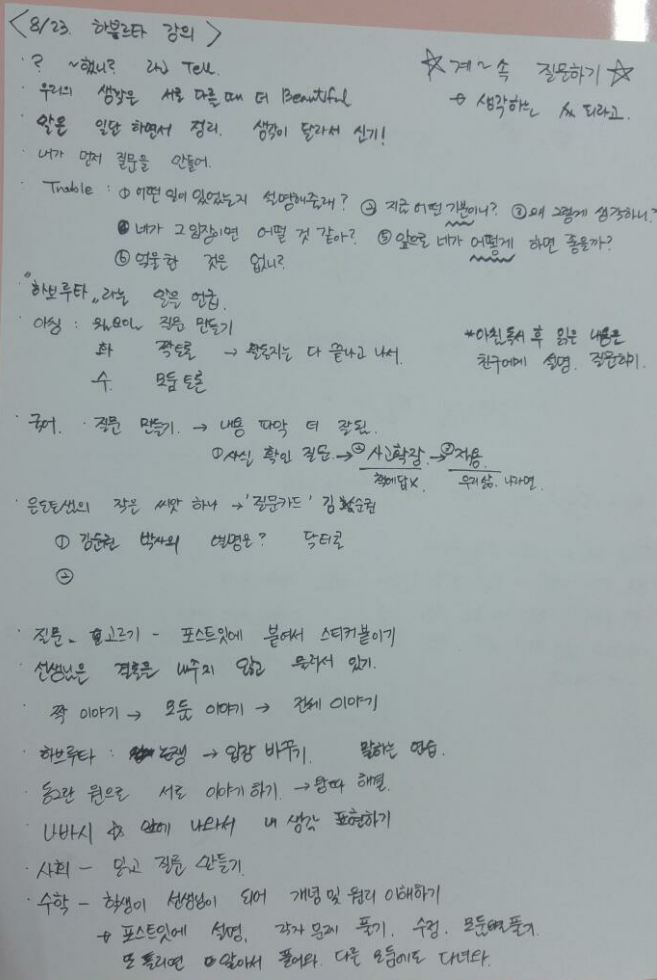 <8/23. 하브루타 강의>
· ? ~했니? 라고 Tell.
☆계~속 질문하기☆
→ 생각하는 되라고.
· 우리의 생각은 서로 다를 때 더 Beautiful
· 앎은 일단 하면서 정리. 생각이 달라서 신기!
· 내가 먼저 질문을 만들어.
· Trouble : ① 어떤 일이 있었는지 설명해줄래? ② 지금 어떤 기분이니? ③ 왜 그렇게 생각하니?
④ 네가 그 입장이면 어떨 것 같아? ⑤ 앞으로 네가 어떻게 하면 좋을까?
⑥ 억울한 것은 없니?
· "하브루타"라는 말은 언급.
· 아침 : 월요일 질문 만들기
화 짝토론 → 활동지는 다 끝나고 나서.
수. 모둠토론
*아침독서 후 읽은 내용은
친구에게 설명. 질문하기.
· 국어. 질문 만들기. → 내용 파악 더 잘됨.
① 사실 확인 질문 → ② 사고확장 → ③ 적용
책에 답 X. 우리 삶. 나라면.
· 작은 씨앗 하나 → '질문카드' 김순권
① 김순권 박사의 별명은? 닥터콘
②
· 질문 고르기 - 포스트잇에 붙여서 스티커 붙이기
· 선생님은 결론을 내주지 않고 물러서 있기.
· 짝 이야기 → 모둠 이야기 → 전체 이야기
· 하브루타 : 논쟁 → 입장 바꾸기. 말하는 연습.
· 동그란 원으로 서로 이야기하기. → 왕따 해결.
· 나바시 앞에 나와서 내 생각 표현하기
· 사회 - 읽고 질문 만들기.
· 수학 - 학생이 선생님이 되어 개념 및 원리 이해하기
→ 포스트잇에 설명, 각자 문제 풀기, 수정. 모둠 풀기.
또 틀리면 알아서 풀어와. 다른 모둠에도 다녀와.